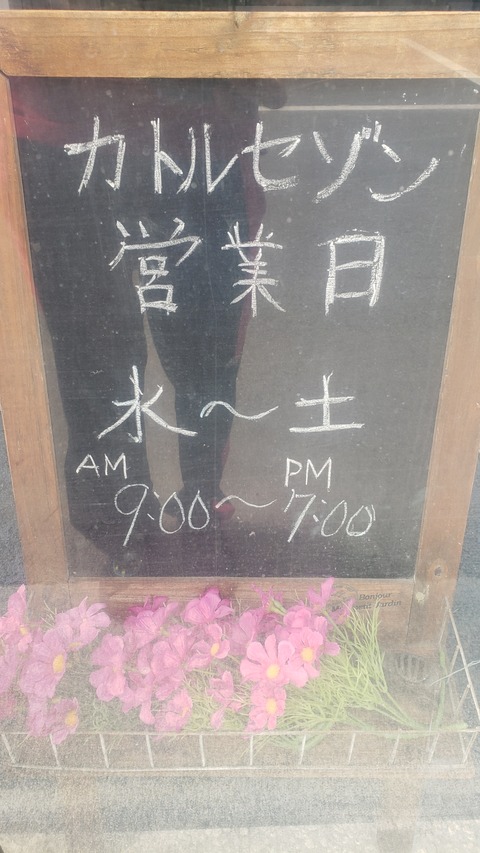 カトルセゾン
営業日
水～土
AM PM
9:00～7:00
Bonjour